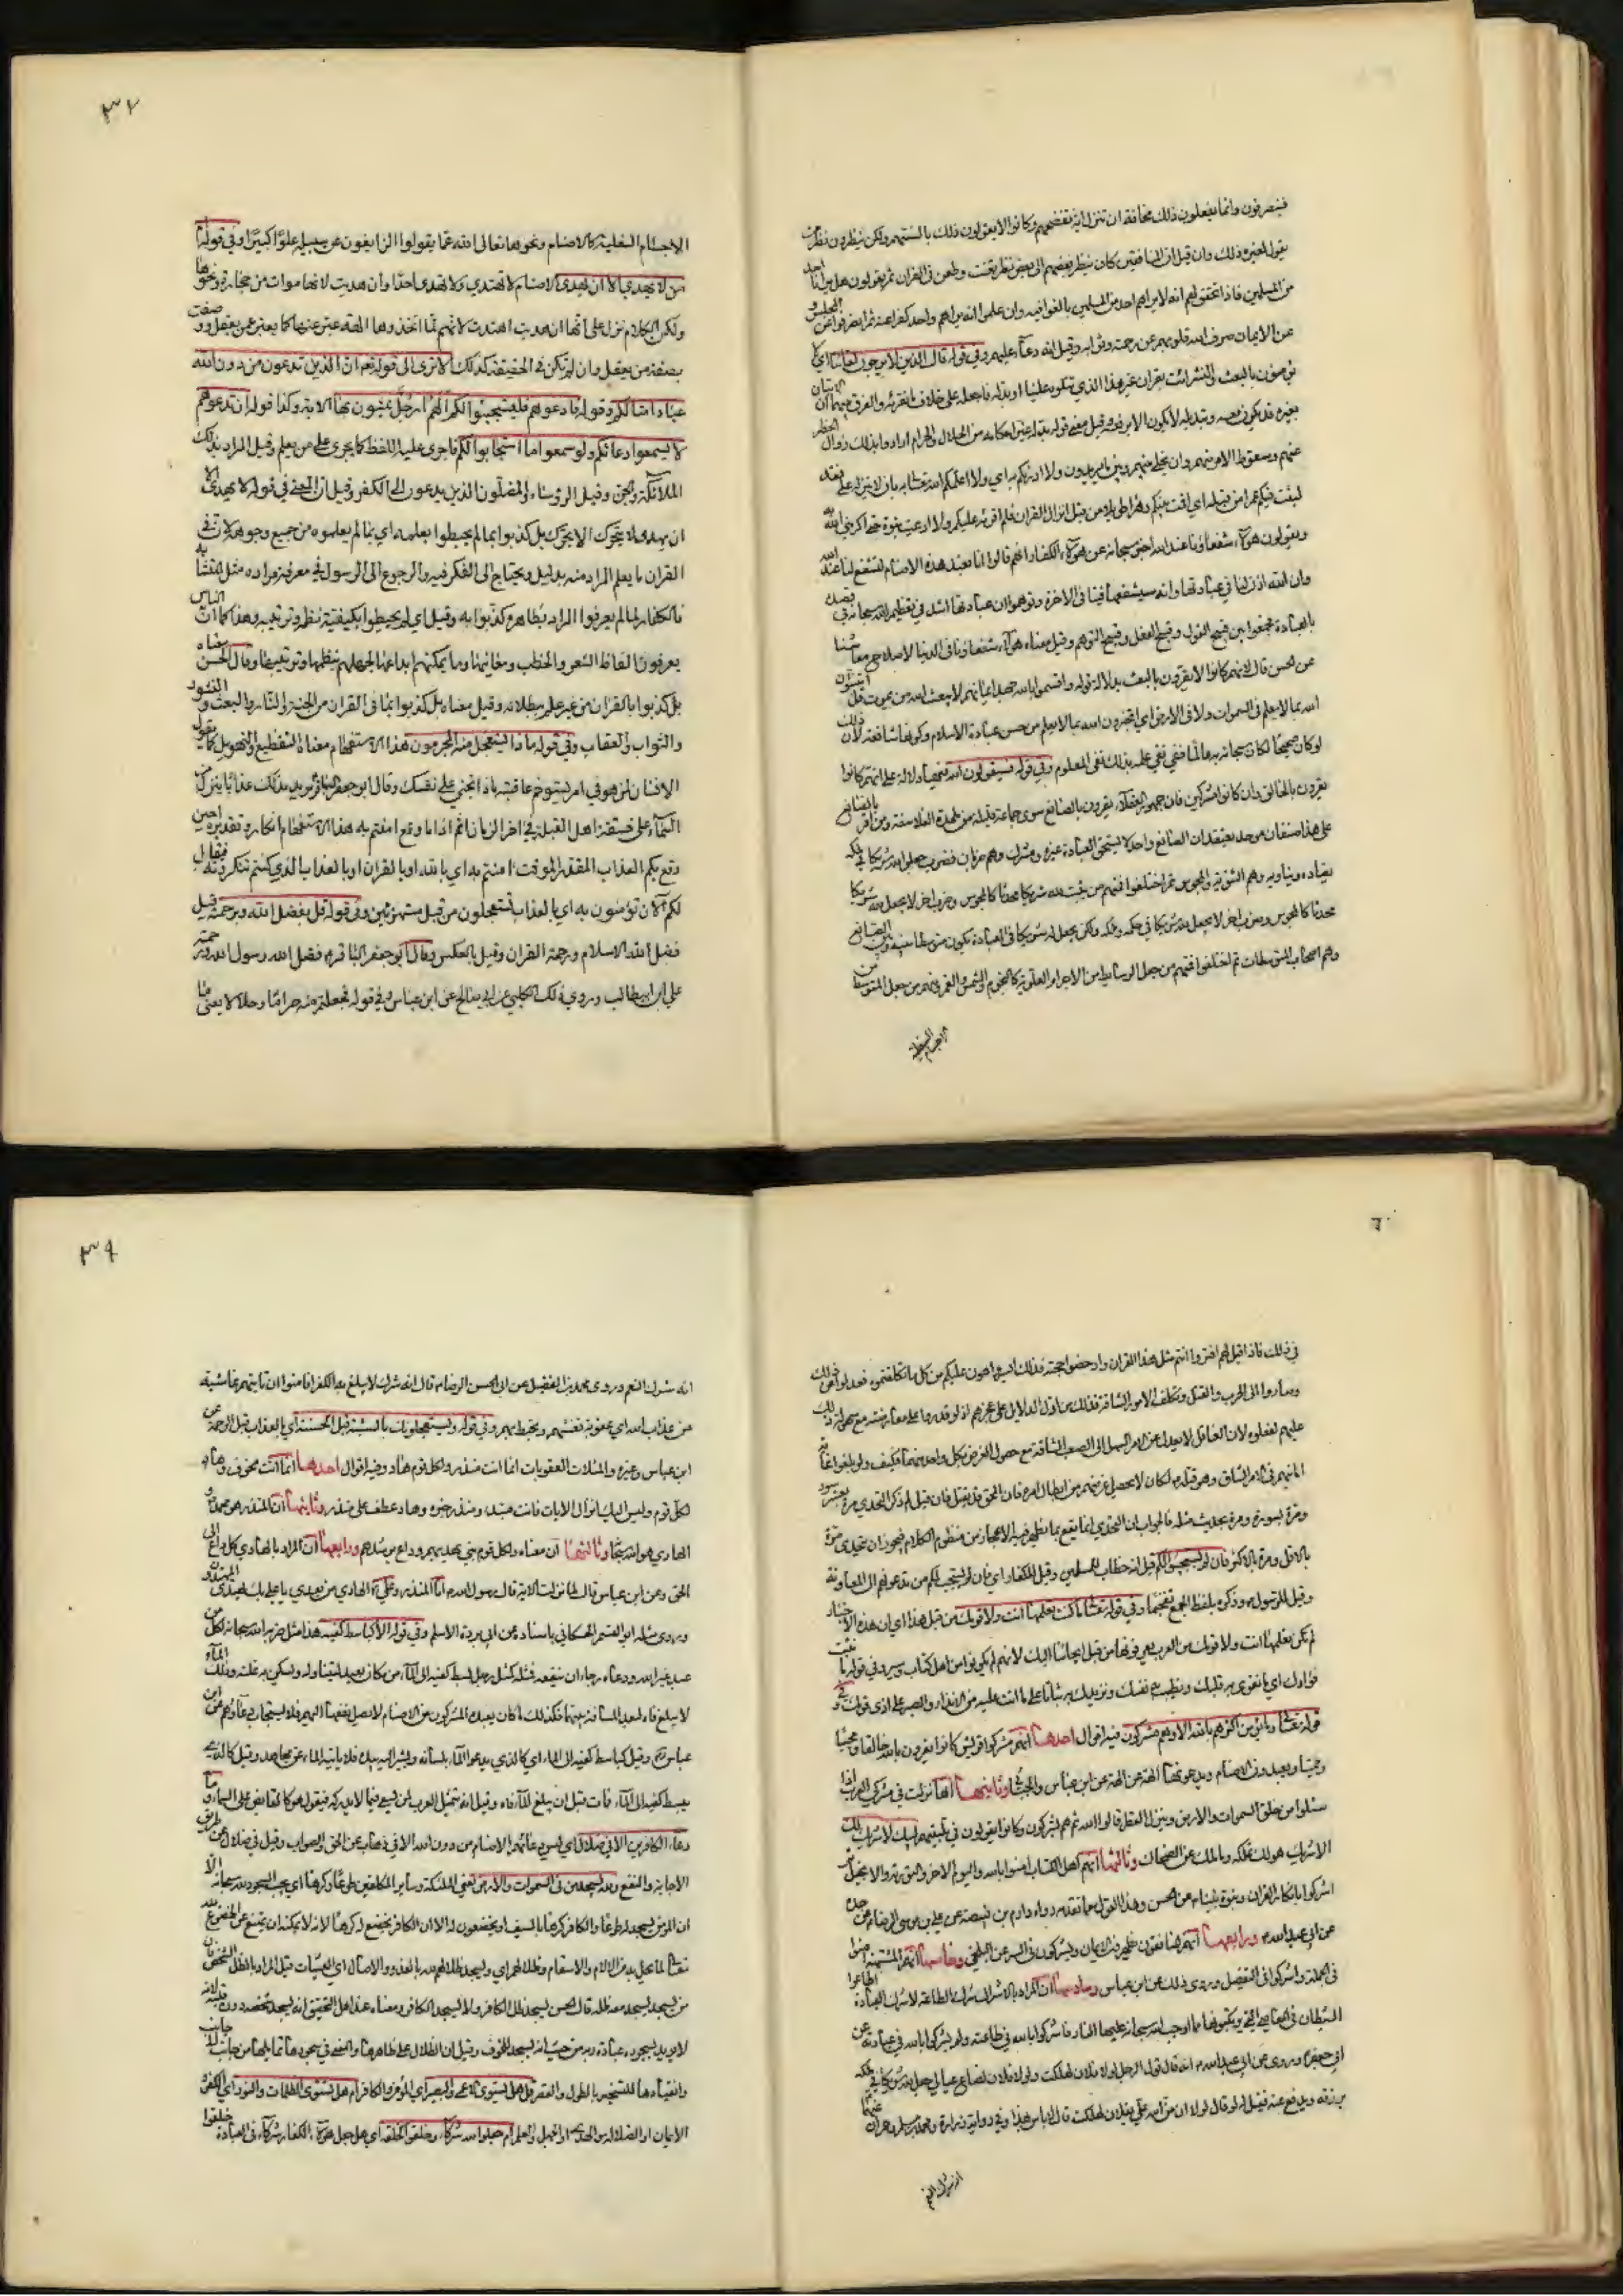 فينصرفون وانما يفعلون ذلك مخافة ان تنزل اية تفضحهم وكانوا لا يقولون ذلك بالسنتهم ولكن ينظرون نظر من
يقول لغيره ذلك وان قيل ان المنافقين كان ينظر بعضهم الى بعض نظر تعنت وطعن في القران ثم يقولون هل يرانا احد
من المسلمين فاذا تحقق لهم انه لا يراهم احد من المسلمين بالغوا فيه وان علموا انه يراهم واحد كفوا عنه ثم انصرفوا عن المجلس و
عن الايمان صرف الله قلوبهم عن رحمته وثوابه وقيل انه دعاء عليهم وفي قوله قال الذين لا يرجون لقاءنا اي لا
يؤمنون بالبعث والنشر ائت بقران غير هذا الذي تتلوه علينا او بدله فاجعله على خلاف ما تقرئه والفرق بينهما ان الاتيان
بغيره قد يكون معه وتبديله لا يكون الا برفعه وقيل معنى قوله بدله غير احكامه من الحلال والحرام ارادوا بذلك زوال الحظر
عنهم وسقوط الامر منهم وان يخلى بينهم وبين ما يريدون ولا ادريكم به اي ولا اعلمكم الله تعالى به بان لا ينزله علي فقد
لبثت فيكم عمرا من قبله اي اقمت بينكم دهرا طويلا من قبل انزال القران فلم اقرئه عليكم ولا ادعيت نبوة حتى اكرمني الله به
ويقولون هؤلاء شفعاؤنا عند الله اخبر سبحانه عن هؤلاء الكفار انهم قالوا انا نعبد هذه الاصنام لتشفع لنا عند الله
وان الله اذن لنا في عبادتها وانه سيشفعها فينا في الاخرة وتوهموا ان عبادتها اشد في تعظيم الله سبحانه من قصده
بالعبادة فجمعوا بين قبيح القول وقبيح الفعل وقبيح التوهم وقيل معناه هؤلاء شفعاؤنا في الدنيا لاصلاح معاشنا
عن الحسن قال لانهم كانوا لا يقرون بالبعث بدلالة قوله واقسموا بالله جهد ايمانهم لا يبعث الله من يموت قل اتنبئون
الله بما لا يعلم في السموات ولا في الارض اي اتخبرون الله بما لا يعلم من حسن عبادة الاصنام وكونها شافعة لان ذلك
لو كان صحيحا لكان سبحانه به عالما ففي نفي علمه بذلك نفي المعلوم وفي قوله فسيقولون الله فيها دلالة على انهم كانوا
يقرون بالخالق وان كانوا مشركين فان جمهور العقلاء يقرون بالصانع سوى جماعة قليلة من ملحدة الفلاسفة ومن اقر بالصانع
على هذا صنفان موحد يعتقد ان الصانع واحد لا يستحق العبادة غيره ومشرك وهم ضربان فضرب جعلوا لله شريكا في ملكه
يضاده ويناويه وهم الثنوية والمجوس ثم اختلفوا فمنهم من يثبت لله شريكا محدثا كالمجوس وضرب اخر لا يجعل لله شريكا
محدثا كالمجوس وضرب اخر لا يجعل لله شريكا في حكمه وملكه ولكن يجعل له شريكا في العبادة يكون متوسطا بينه وبين الصانع
وهم اصحاب المتوسطات ثم اختلفوا فمنهم من جعل الوسائط من الاجرام العلوية كالنجوم والشمس والقمر ومنهم من جعل المتوسط من
الاجسام السفلية
٣٤
الاجسام السفلية كالاصنام ونحوها تعالى الله عما يقولوا الزايغون عن سبيله علوا كبيرا وفي قوله
من لا يهدي الا ان يهدى الاصنام لا تهتدي ولا تهدي احدا وان هديت لانها موات من حجارة ونحوها
ولكن الكلام نزل على انها ان هديت اهتدت لانهم لما اتخذوها الهة عبر عنها كما يعبر عمن يعقل ووصفت
بصفة من يعقل وان لم تكن في الحقيقة كذلك الا ترى الى قوله نعم ان الذين تدعون من دون الله
عباد امثالكم وقوله فادعوهم فليستجيبوا لكم الهم ارجل يمشون بها الاية وكذا قوله ان تدعوهم
لا يسمعوا دعائكم ولو سمعوا ما استجابوا لكم فاجرى عليه اللفظ كما يجرى على من يعلم وقيل المراد بذلك
الملائكة والجن وقيل الرؤساء والمضلون الذين يدعون الى الكفر وقيل ان المعنى في قوله لا يهدي الا
ان يهدى لا يتحرك الا يحرك بل كذبوا بما لم يحيطوا بعلمه اي بما لم يعلموه من جميع وجوهه لان في
القران ما يعلم المراد منه بدليل ويحتاج الى الفكر فيه والرجوع الى الرسول في معرفة مراده مثل المتشابه
فالكفار لما لم يعرفوا المراد بظاهره كذبوا به وقيل اي لم يحيطوا بكيفية نظمه وترتيبه وهذا كما ان الناس
يعرفون الفاظ الشعر والخطب ومعانيها وما يمكنهم ابداعها لجهلهم بنظمها وترتيبها وقال الحسن معناه
بل كذبوا بالقران من غير علم ببطلانه وقيل معناه بل كذبوا بما في القران من الجنة والنار والبعث والنشور
والثواب والعقاب وفي قوله ماذا يستعجل منه المجرمون هذا الاستفهام معناه التفظيع والتهويل كما يقول
الانسان لمن هو في امر يستوخم عاقبته ماذا تجني على نفسك وقال ابو جعفر الباقر يريد بذلك عذابا ينزل من
السماء على فسقة اهل القبلة في اخر الزمان اثم اذا ما وقع امنتم به هذا الاستفهام انكار وتقديره احين
وقع بكم العذاب المقدر الموقت امنتم به اي بالله او بالقران او بالعذاب الذي كنتم تنكرونه فيقال
لكم الان تؤمنون به اي بالعذاب تستعجلون من قبل مستهزئين وفي قوله قل بفضل الله وبرحمته قيل
فضل الله الاسلام ورحمته القران وقيل بالعكس وقال ابو جعفر الباقر فضل الله رسول الله ورحمته
علي ابن ابيطالب وروى ذلك الكلبي عن ابي صالح عن ابن عباس وفي قوله فجعلتم منه حراما وحلالا يعني ما
في ذلك فاذا قيل لهم افتروا انتم مثل هذا القران وادحضوا حجته فذلك ايسر واهون عليكم من كل ما تكلفتموه فعدلوا عن ذلك
وصاروا الى الحرب والقتل وتكلف الامور الشاقة فذلك من ادل الدلايل على عجزهم اذ لو قدروا على معارضته مع سهولة ذلك
عليهم لفعلوه لان العاقل لا يعدل عن الامر السهل الى الصعب الشاق مع حصول الغرض بكل واحد منهما فكيف ولو بلغوا غاية
امانيهم في الامر الشاق وهو قتله لكان لا يحصل غرضهم من ابطال امره فان المحق قد يقتل فان قيل لم ذكر التحدي مرة بعشر سور
ومرة بسورة ومرة بحديث مثله فالجواب ان التحدي انما يقع بما يظهر فيه الاعجاز من منظوم الكلام فيجوز ان يتحدى مرة
بالاقل ومرة بالاكثر فان لم يستجيبوا لكم قيل انه خطاب للمسلمين وقيل للكفار اي فان لم يستجب لكم من تدعونهم الى المعاونة
وقيل للرسول وذكره بلفظ الجمع تفخيما وفي قوله تعالى ما كنت تعلمها انت ولا قومك من قبل هذا اي ان هذه الاخبار
لم تكن تعلمها انت ولا قومك من العرب يعرفونها من قبل ايحائنا اليك لانهم لم يكونوا من اهل كتاب وسير وفي قوله ما نثبت
فؤادك اي ما نقوي به قلبك ونطيب به نفسك ونزيدك به ثباتا على ما انت عليه من الانذار والصبر على اذى قومك وفي
قوله تعالى وما يؤمن اكثرهم بالله الا وهم مشركون فيه اقوال احدها انهم مشركوا قريش كانوا يقرون بالله خالقا ومحييا
ومميتا ويعبدون الاصنام ويدعونها الهة عن ابن عباس والجبائي وثانيها انها نزلت في مشركي العرب اذا
سئلوا من خلق السموات والارض وينزل القطر قالوا الله ثم هم يشركون وكانوا يقولون في تلبيتهم لبيك لا شريك لك
الا شريك هو لك تملكه وما ملك عن الضحاك وثالثها انهم اهل الكتاب امنوا بالله واليوم الاخر والتورية والانجيل ثم
اشركوا بانكار القران ونبوة نبينا عن الحسن وهذا القول مما تقدمه رواه دارم بن قبيصة عن علي بن موسى الرضا عن جده
عن ابي عبد الله ورابعها انهم المنافقون يظهرون الايمان ويشركون في السر عن البلخي وخامسها انهم المشبهة امنوا
في الجملة واشركوا في التفصيل وروى ذلك عن ابن عباس وسادسها ان المراد بالاشراك شرك الطاعة لا شرك العبادة اطاعوا
الشيطان في المعاصي التي يرتكبونها مما اوجب الله سبحانه عليها النار فاشركوا بالله في طاعته ولم يشركوا بالله في عبادته عن
ابي جعفر وروى عن ابي عبد الله انه قال قول الرجل لولا فلان لهلكت ولولا فلان لضاع عيالي جعل لله شريكا في ملكه
يرزقه ويدفع عنه فقيل له لو قال لولا ان من الله علي بفلان لهلكت قال لا باس بهذا وفي رواية زرارة ومحمد بن مسلم وحمران عنهما
انه شرك النعم
٣٩
انه شرك النعم وروى محمد بن الفضيل عن ابي الحسن الرضا قال انه شرك لا يبلغ به الكفر افامنوا ان تاتيهم غاشية
من عذاب الله اي عقوبة تغشيهم وتحيط بهم وفي قوله ويستعجلونك بالسيئة قبل الحسنة اي بالعذاب قبل الرحمة عن
ابن عباس وغيره والمثلات العقوبات انما انت منذر ولكل قوم هاد وفيه اقوال احدها انما انت مخوف وهاد
لكل قوم وليس اليك انزال الايات فانت مبتدء ومنذر خبره وهاد عطف على منذر وثانيها ان المنذر هو محمد و
الهادي هو الله سبحانه وثالثها ان معناه ولكل قوم نبي يهديهم وداع يرشدهم ورابعها ان المراد بالهادي كل داع الى
الحق وعن ابن عباس قال لما نزلت الاية قال رسول الله انا المنذر وعلي الهادي من بعدي يا علي بك يهتدي المهتدون
وروى مثله ابو القسم الحسكاني باسناده عن ابي بردة الاسلمي وفي قوله الا كباسط كفيه هذا مثل ضربه الله سبحانه لكل من
عبد غير الله ودعاه رجاء ان ينفعه فمثله كمثل رجل بسط كفيه الى الماء من مكان بعيد ليتناوله ويسكن به غلته وذلك الماء
لا يبلغ فاه لبعد المسافة بينهما فكذلك ما كان يعبده المشركون من الاصنام لا يصل نفعها اليهم فلا يستجاب دعاؤهم عن ابن
عباس وقيل كباسط كفيه الى الماء اي كالذي يدعو الماء بلسانه ويشير اليه بيده فلا ياتيه الماء عن مجاهد وقيل كالذي
يبسط كفيه الى الماء فمات قبل ان يبلغ الماء فاه وقيل انه يتمثل العرب لمن يسعى فيما لا يدركه فيقول هو كالقابض على الماء وما
دعاء الكافرين الا في ضلال اي ليس دعائهم الاصنام من دون الله الا في ذهاب عن الحق والصواب وقيل في ضلال عن طريق
الاجابة والنفع ولله يسجد من في السموات والارض يعني الملئكة وساير المكلفين طوعا وكرها اي يجب السجود لله سبحانه الا
ان المؤمن يسجد له طوعا والكافر كرها بالسيف او يخضعون له الا ان الكافر يخضع له كرها لانه لا يمكنه ان يمتنع عن الخضوع لله
تعالى لما يحل به من الالام والاسقام وظلالهم اي ويسجد ظلالهم لله بالغدو والاصال اي العشيات قيل المراد بالظل الشخص فان
من يسجد يسجد معه ظله قال الحسن يسجد ظل الكافر ولا يسجد الكافر ومعناه عند اهل التحقيق انه يسجد شخصه دون قلبه لانه
لا يريد بسجوده عبادة ربه من حيث انه يسجد للخوف وقيل ان الظلال على ظاهرها والمعنى في سجودها تمايلها من جانب الى جانب
وانقيادها للتسخير بالطول والقصر قل هل يستوي الاعمى والبصير اي المؤمن والكافر ام هل تستوي الظلمات والنور اي الكفر و
الايمان او الضلالة والهدى او الجهل والعلم ام جعلوا لله شركاء خلقوا كخلقه اي هل جعل هؤلاء الكفار شركاء في العبادة خلقوا